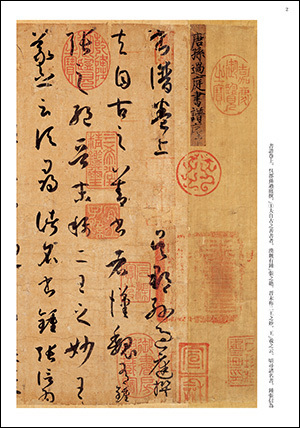 2
書譜卷上。吳郡孫過庭撰。夫自古之善書者。漢魏有鍾張之絕。晉末稱二王之妙。王羲之云。頃尋諸名書。鍾張信為
唐孫過庭書譜
書譜卷上 吳郡孫過庭撰
夫自古之善書者漢魏有鍾
張之絕晉末稱二王之妙王
羲之云頃尋諸名書鍾張信為